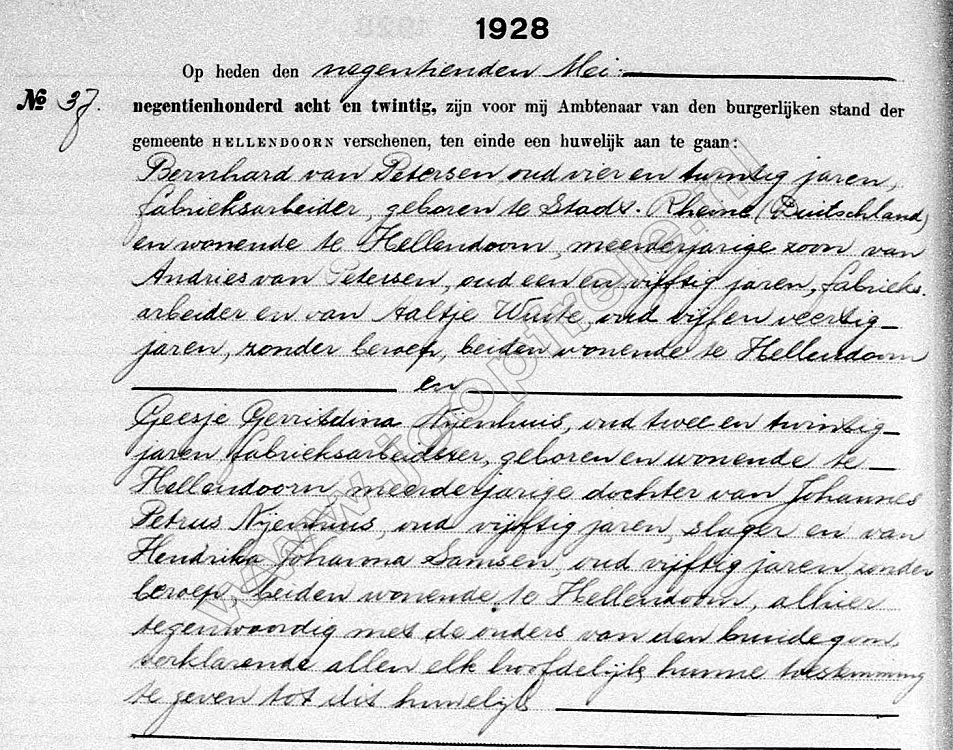 1928
Op heden den negentienden Mei
№ 37. negentienhonderd acht en twintig, zijn voor mij Ambtenaar van den burgerlijken stand der
gemeente HELLENDOORN verschenen, ten einde een huwelijk aan te gaan:
Bernhard van Petersen, oud vier en twintig jaren,
fabrieksarbeider, geboren te Stadt. Rheine (Duitschland)
en wonende te Hellendoorn, meerderjarige zoon van
Andries van Petersen, oud een en vijftig jaren, fabrieks-
arbeider en van Aaltje Winte, oud vijf en veertig
jaren, zonder beroep, beiden wonende te Hellendoorn
en
Geesje Gerritdina Nijenhuis, oud twee en twintig
jaren, fabrieksarbeidster, geboren en wonende te
Hellendoorn, meerderjarige dochter van Johannes
Petrus Nijenhuis, oud vijftig jaren, slager en van
Hendrika Johanna Samsen, oud vijftig jaren, zonder
beroep, beiden wonende te Hellendoorn, alhier
tegenwoordig met de ouders van den bruidegom,
verklarende allen elk hoofdelijk hunne toestemming
te geven tot dit huwelijk